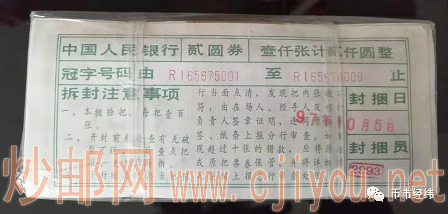 中国人民银行 贰圆券 壹仟张计贰仟圆整
冠字号码由 RI65675001 至 RI65676000 止
拆封注意事项
一、本捆拾把，每把壹百张。
二、开封前先检查有无破
行当面点清，发现把内张数
在场人、经手人及
负责人签章证明，连同
签，纸条上报分行审查。
现超过十张的错款，应将
或原把票卷保管，
封捆日
97年10月5日
封捆员
2093
炒邮网 www.cjiyou.net
币币经纬